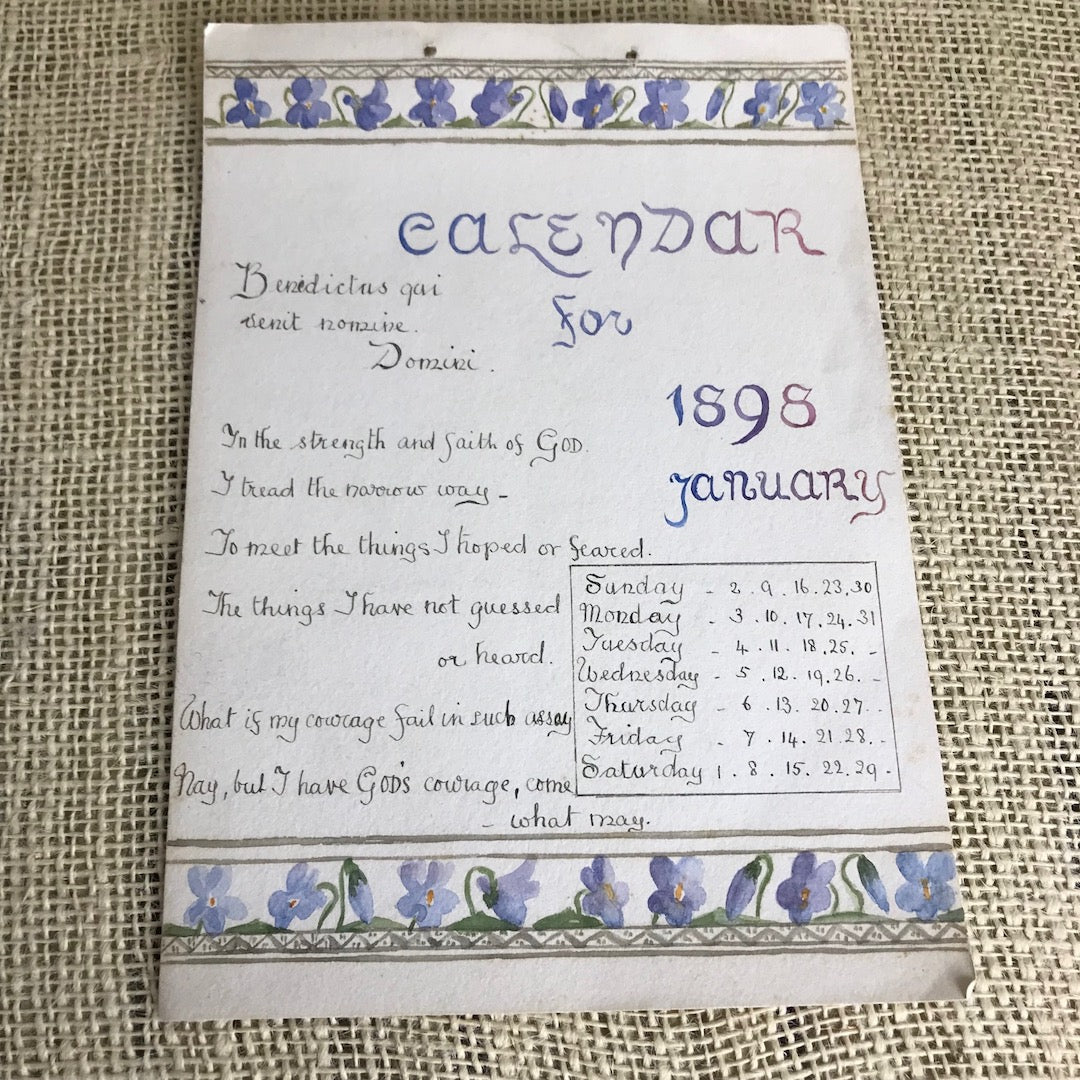 CALENDAR
for
1898
January
Benedictus qui
venit nomine.
Domini.
In the strength and faith of GOD.
I tread the narrow way -
To meet the things I hoped or feared.
The things I have not guessed
or heard.
What if my courage fail in such assay
Nay, but I have GOD'S courage, come
- what may.
Sunday - 2 . 9 . 16 . 23 . 30
Monday - 3 . 10 . 17 . 24 . 31
Tuesday - 4 . 11 . 18 . 25 . -
Wednesday - 5 . 12 . 19 . 26 . -
Thursday - 6 . 13 . 20 . 27 . -
Friday - 7 . 14 . 21 . 28 . -
Saturday 1 . 8 . 15 . 22 . 29 -